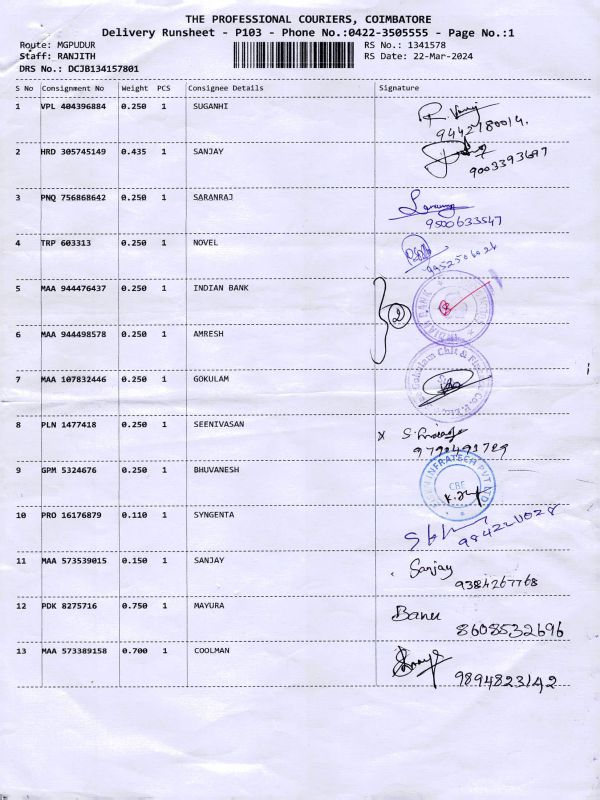 THE PROFESSIONAL COURIERS, COIMBATORE
Delivery Runsheet - P103 - Phone No.:0422-3505555 - Page No.:1
Route: MGPUDUR RS No.: 1341578
Staff: RANJITH RS Date: 22-Mar-2024
DRS No.: DCJB134157801
S No Consignment No Weight PCS Consignee Details Signature
1 VPL 404396884 0.250 1 SUGANHI
9442180014.
2 HRD 305745149 0.435 1 SANJAY
9003393687
3 PNQ 756868642 0.250 1 SARANRAJ
9500633547
4 TRP 603313 0.250 1 NOVEL
9952506026
5 MAA 944476437 0.250 1 INDIAN BANK
2
INDIAN BANK
6 MAA 944498578 0.250 1 AMRESH
7 MAA 107832446 0.250 1 GOKULAM
Gokulam Chit &
8 PLN 1477418 0.250 1 SEENIVASAN
X
9790491729
9 GPM 5324676 0.250 1 BHUVANESH
INFRATECH PVT
CBE
10 PRO 16176879 0.110 1 SYNGENTA
11 MAA 573539015 0.150 1 SANJAY
Sanjay
9384267768
12 PDK 8275716 0.750 1 MAYURA
Banu
8608532696
13 MAA 573389158 0.700 1 COOLMAN
9894823142